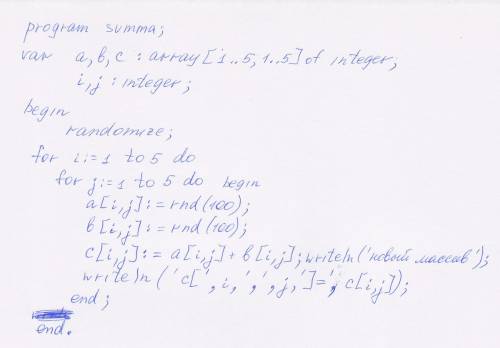 program summa;
var a,b,c : array [1..5, 1..5] of integer;
i,j : integer;
begin
randomize;
for i:=1 to 5 do
for j:=1 to 5 do begin
a[i,j]:=rnd(100);
b[i,j]:=rnd(100);
c[i,j]:= a[i,j]+b[i,j]; writeln('новый массив');
writeln ('c[', i, ',', j, ']=', c[i,j]);
end;
end.